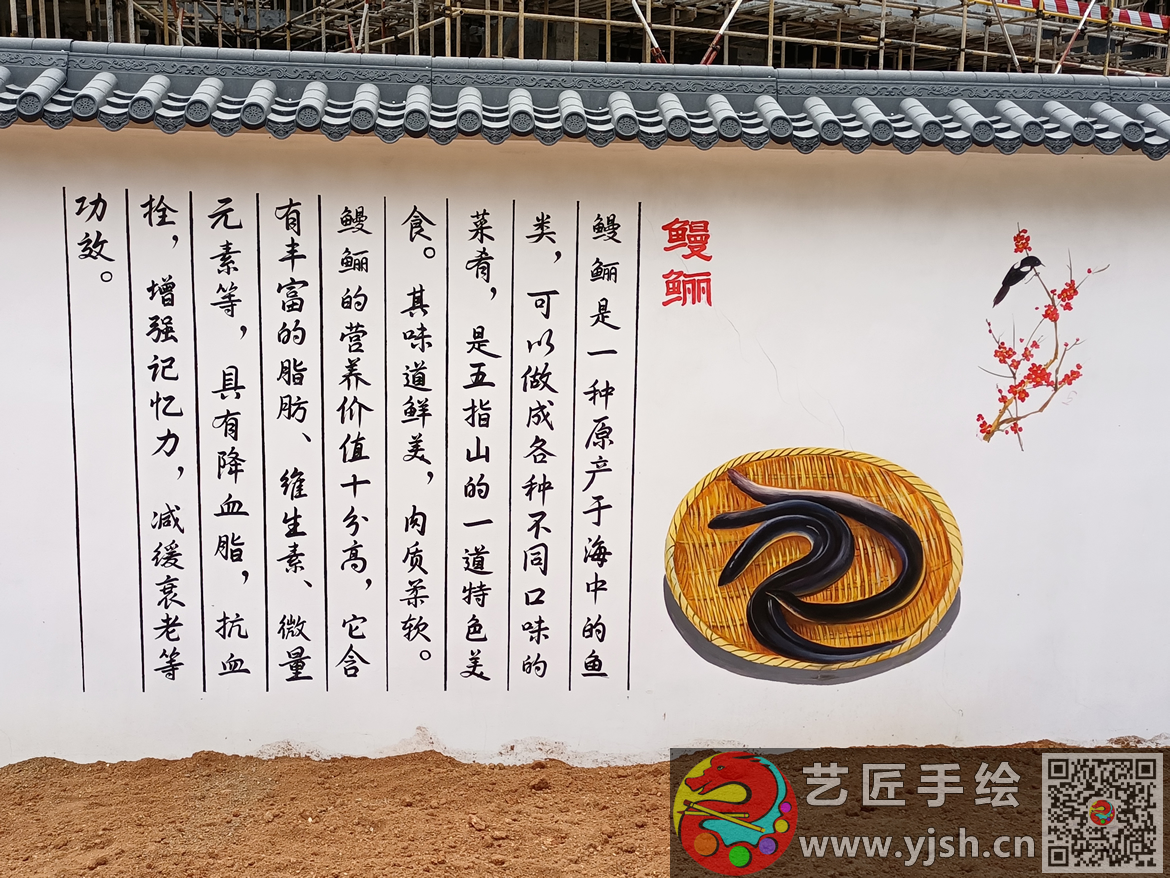 鳗鲡
鳗鲡是一种原产于海中的鱼
类，可以做成各种不同口味的
菜肴，是五指山的一道特色美
食。其味道鲜美，肉质柔软。
鳗鲡的营养价值十分高，它含
有丰富的脂肪、维生素、微量
元素等，具有降血脂，抗血
栓，增强记忆力，减缓衰老等
功效。
艺匠手绘
www.yjsh.cn